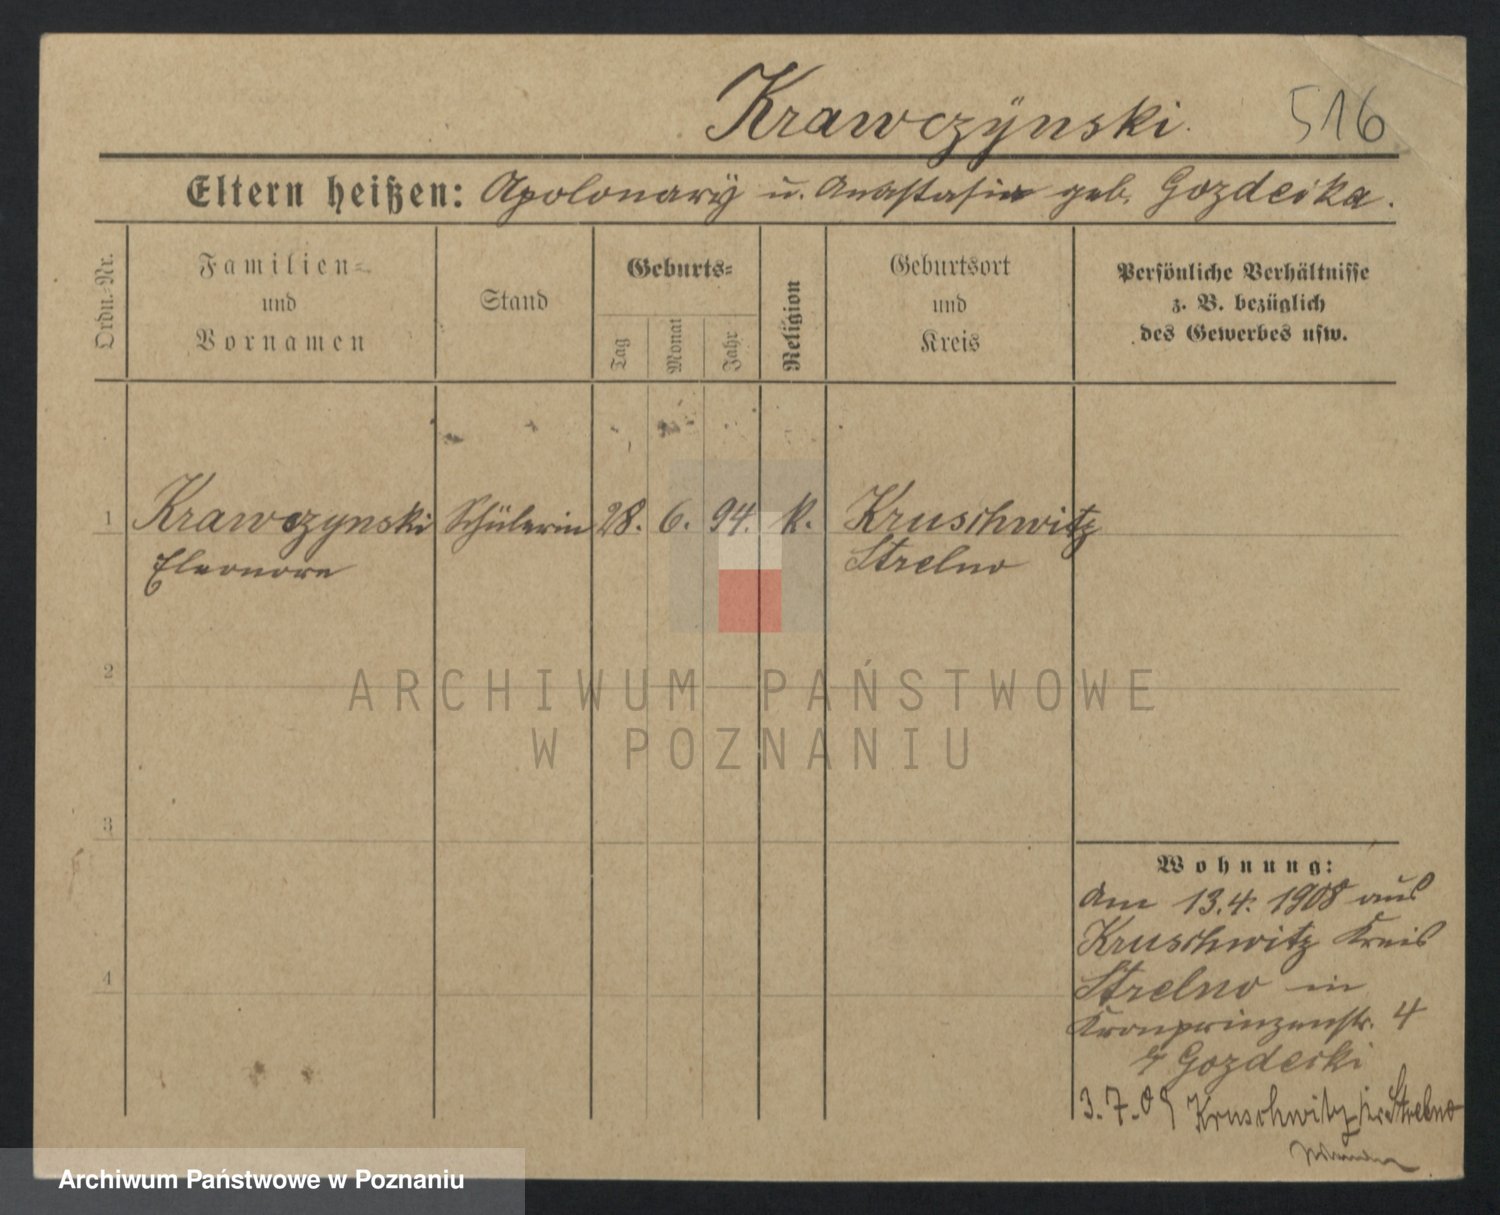 Krawczÿnski. 516
Eltern heißen: Apolonarÿ u. Anastasia geb. Gozdecka.
Ordn.-Nr.
Familien-
und
Vornamen
Stand
Geburts-
Tag
Monat
Jahr
Religion
Geburtsort
und
Kreis
Persönliche Verhältnisse
z. B. bezüglich
des Gewerbes usw.
1 Krawczynski Schülerin 28. 6. 94. k. Kruschwitz
Eleonore Strelno
2
ARCHIWUM PAŃSTWOWE
W POZNANIU
3
Wohnung:
am 13.4. 1908 aus
Kruschwitz Kreis
Strelno in
4
Kronprinzenstr. 4
Gozdecki
3.7.09 Kruschwitz Kr. Strelno
Archiwum Państwowe w Poznaniu